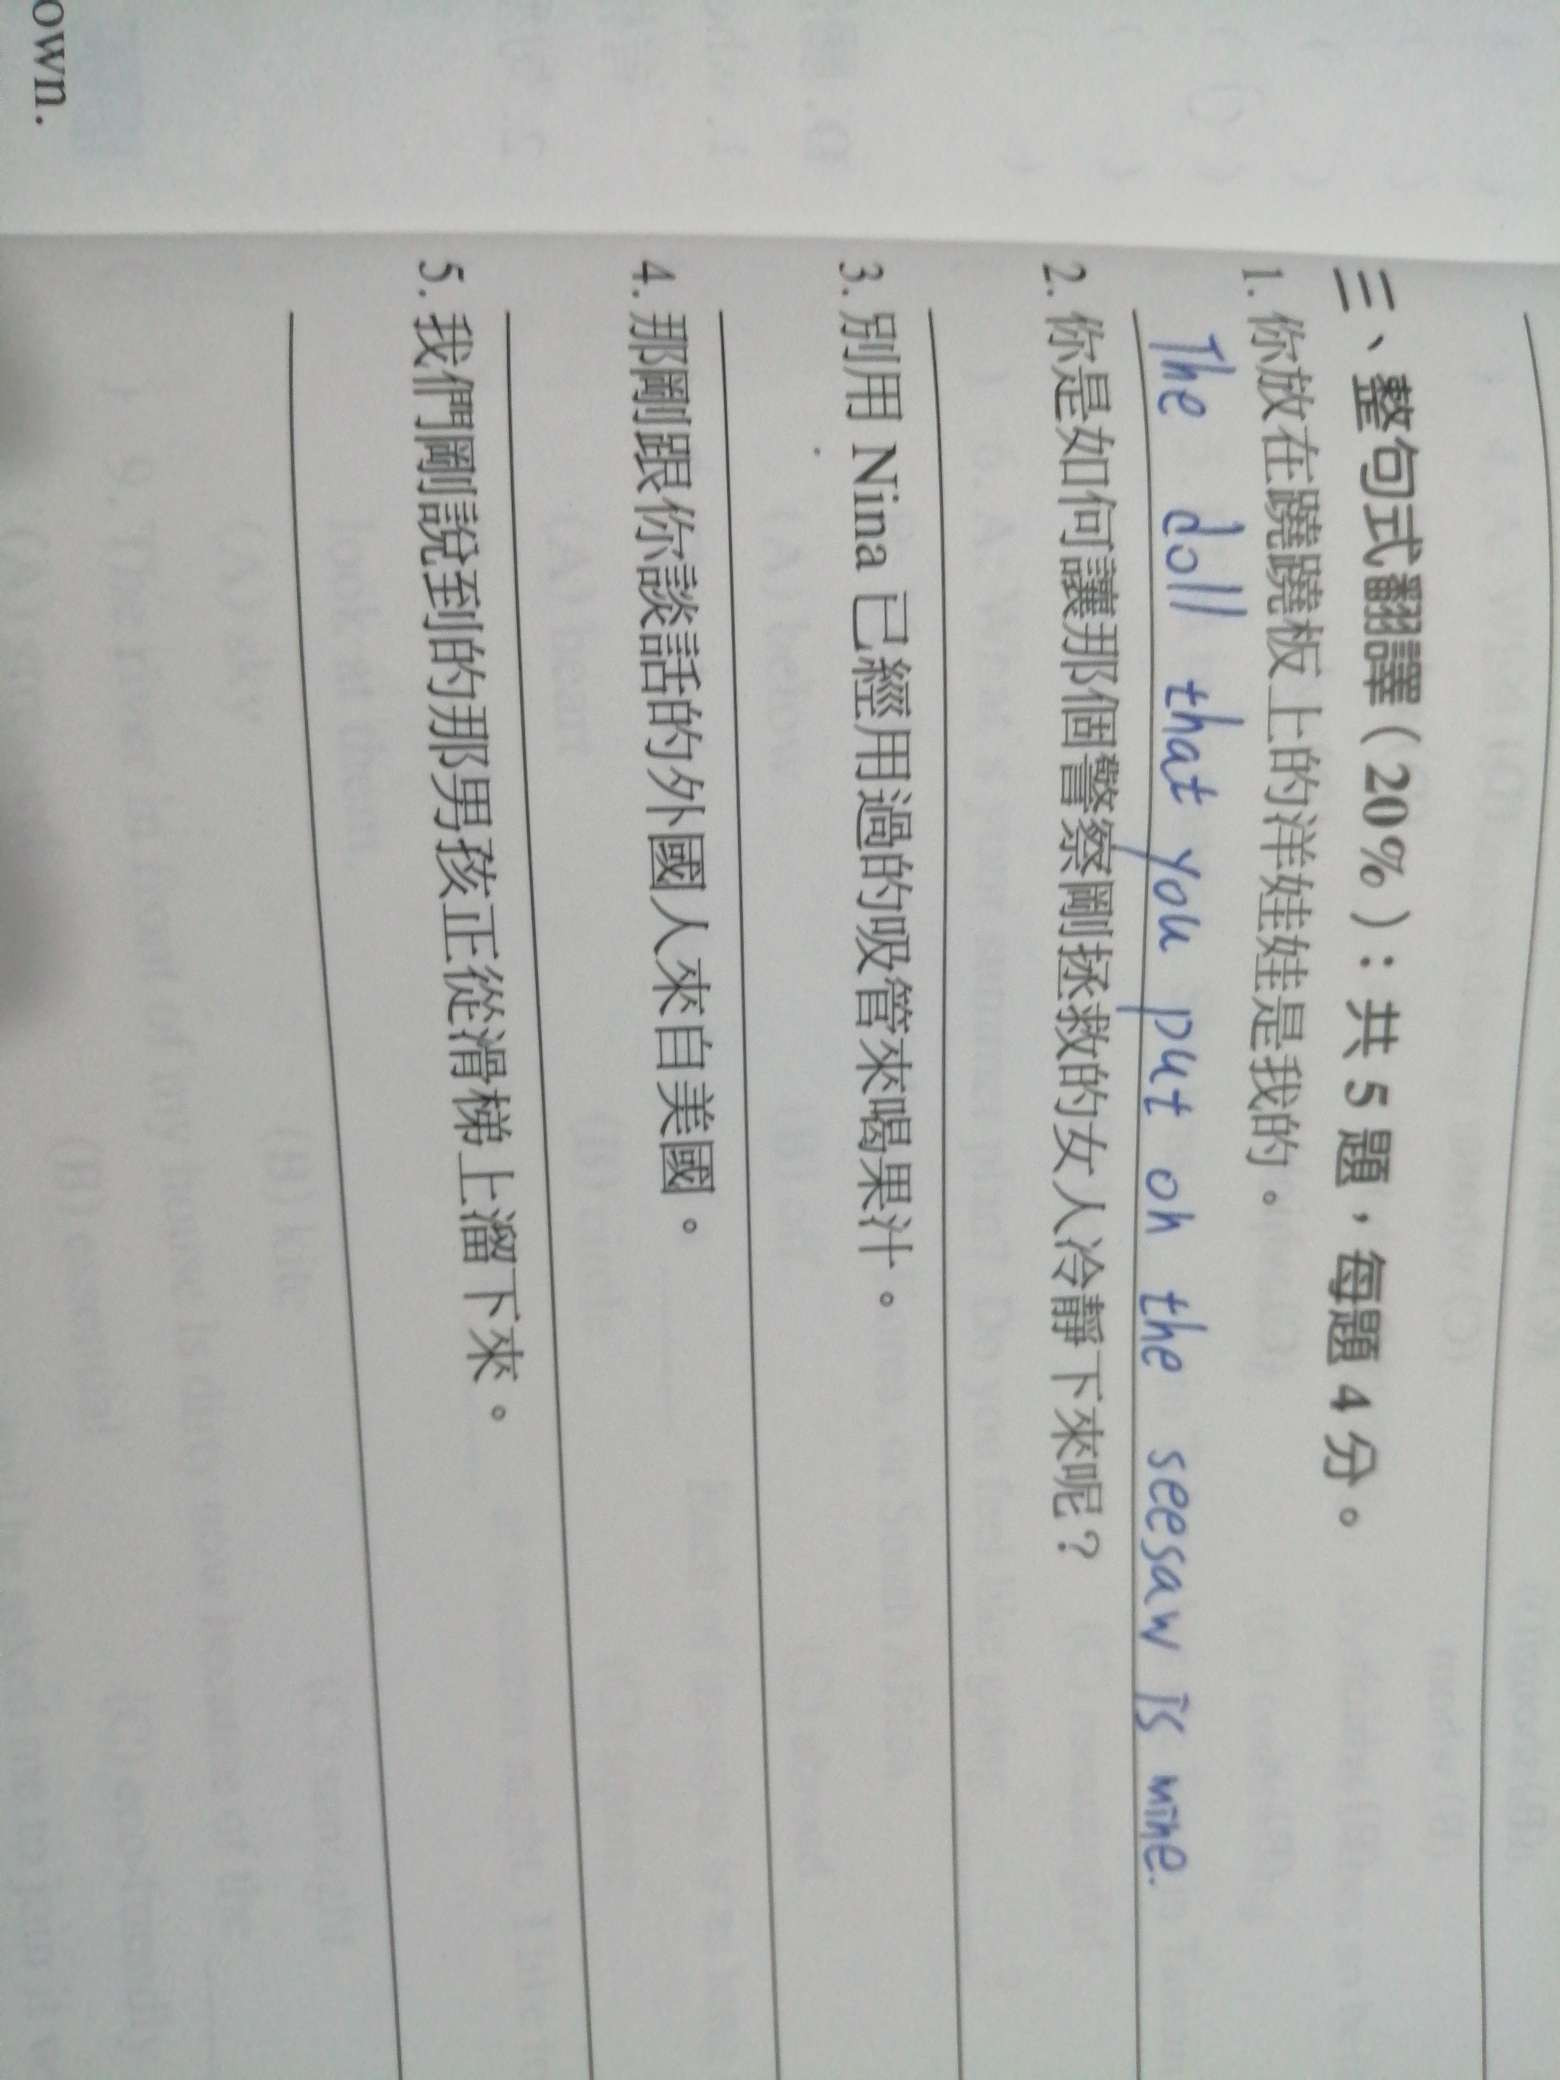 own.
三、整句式翻譯(20%):共5題,每題4分。
1. 你放在蹺蹺板上的洋娃娃是我的。
The doll that you put on the seesaw is mine.
2. 你是如何讓那個警察剛拯救的女人冷靜下來呢?
3. 別用 Nina 已經用過的吸管來喝果汁。
4. 那剛跟你談話的外國人來自美國。
5. 我們剛說到的那男孩正從滑梯上溜下來。